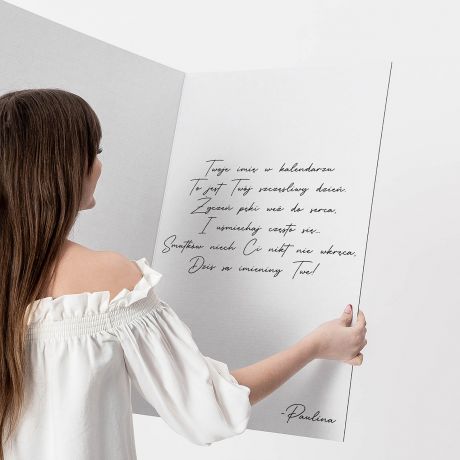 Twoje imię w kalendarzu
To jest Twój szczęśliwy dzień.
Życzeń pęki weź do serca,
I uśmiechaj często się...
Smutków niech Ci nikt nie wkręca,
Dziś są imieniny Twe!
-Paulina